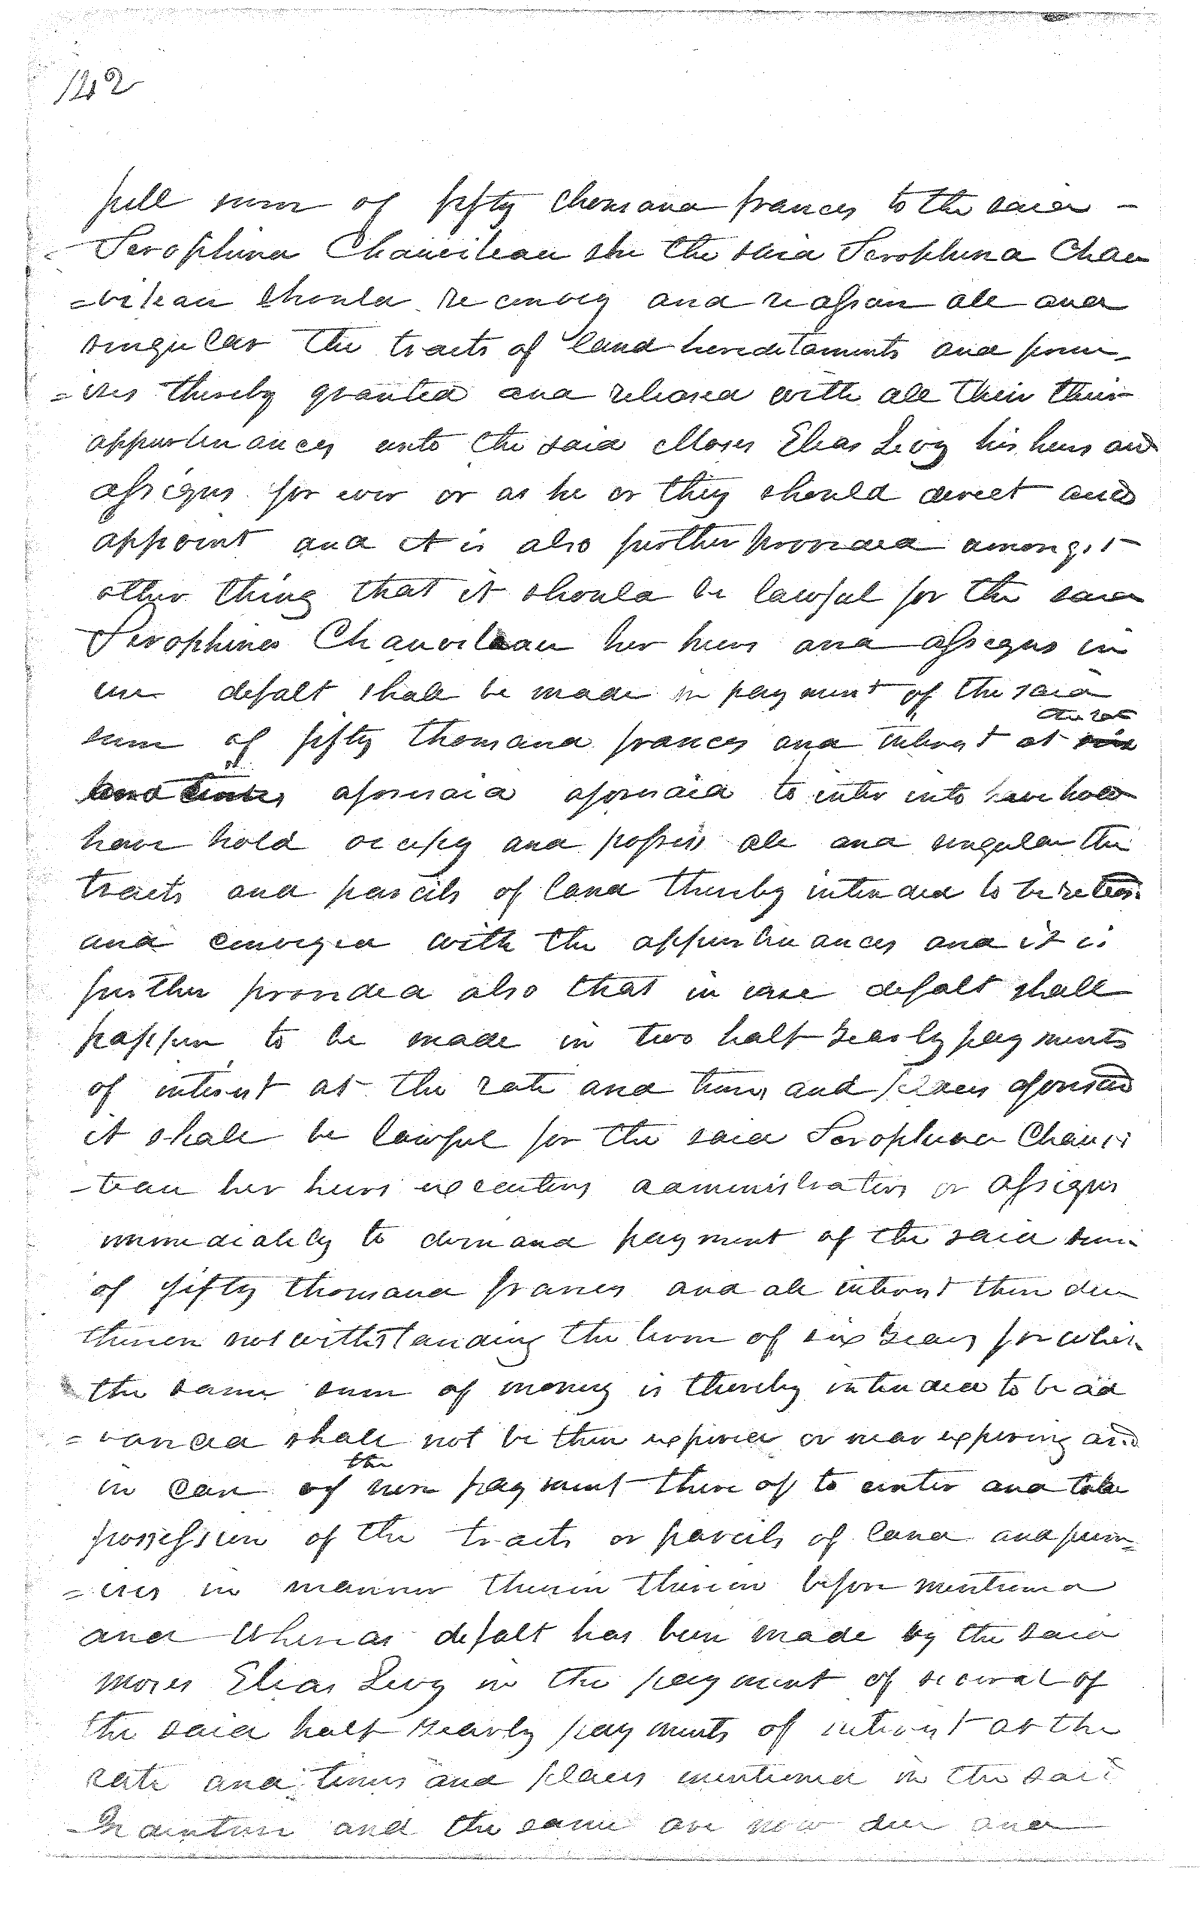 142
full sum of fifty thousand frances to the said -
Seraphina Chauviteau she the said Seraphina Chau
=viteau should reconvey and reassign all and
singular the tracts of land hereditaments and prem-
=ises thereby granted and released with all their their
appurtenances unto the said Moses Elias Levy his heirs and
assigns for ever or as he or they should direct and
appoint and it is also further provided amongst
other thing that it should be lawful for the said
Seraphina Chauviteau her heirs and assigns in
case defalt shall be made in payment of the said
sum of fifty thousand frances and interest at the rate
and times aforesaid aforesaid to enter into have hold
have hold occupy and possess all and singular the
tracts and parcels of land thereby intended to be released
and conveyed with the appurtenances and it is
further provided also that in case defalt shall
happen to be made in two half yearly payments
of interest at the rate and times and places aforesaid
it shall be lawful for the said Seraphina Chauvi
-teau her heirs executors administrators or assigns
immediately to demand payment of the said sum
of fifty thousand frances and all interest then due
thereon notwithstanding the term of six years for which
the same sum of money is thereby intended to be ad
=vanced shall not be then expired or near expiring and
in case of the non payment there of to enter and take
possession of the tracts or parcels of land and prem=
=ises in manner therein therein before mentioned
and Whereas defalt has been made by the said
Moses Elias Levy in the payment of several of
the said half yearly payments of interest at the
rate and times and places mentioned in the said
Indenture and the same are now due and